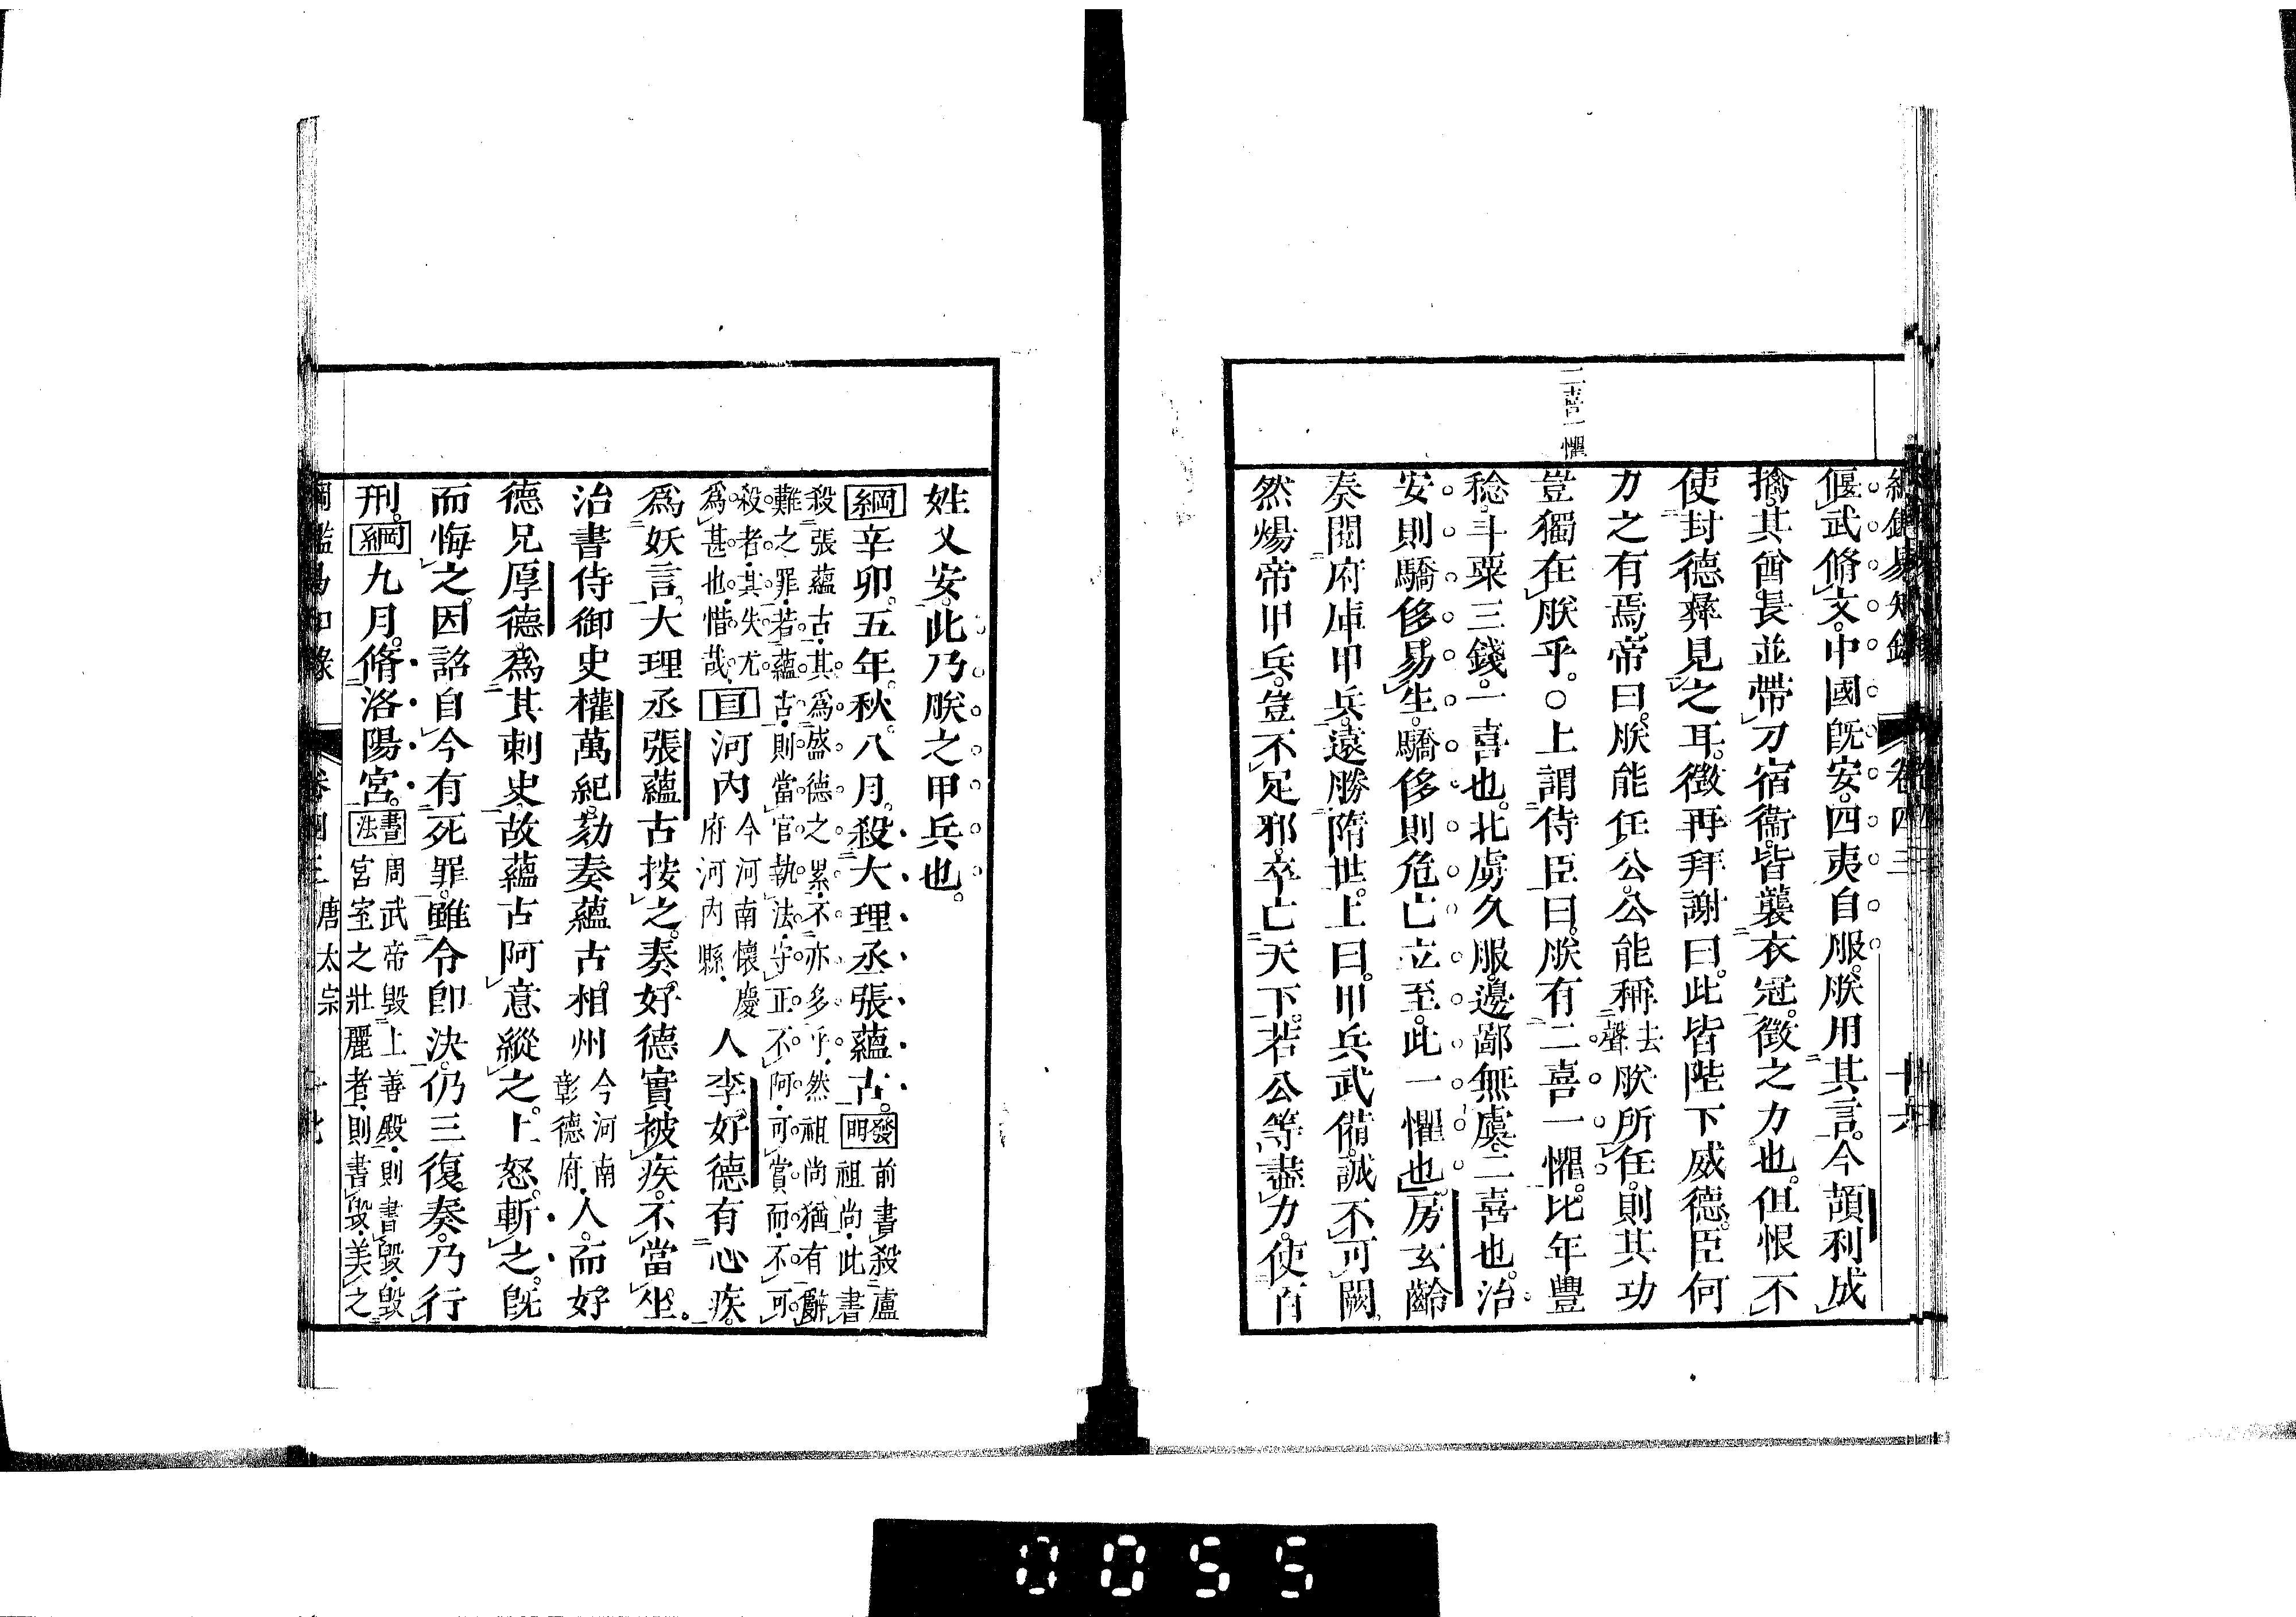 綱鑑易知錄 卷四三 十六
二喜一懼
偃武脩文。中國旣安。四夷自服。朕用其言。今頡利成
擒。其酋長並帶刀宿衞。皆襲衣冠。徵之力也。但恨不
使封德彝見之耳。徵再拜謝曰。此皆陛下威德。臣何
力之有焉。帝曰。朕能任公。公能稱去聲朕所任。則其功
豈獨在朕乎。○上謂侍臣曰。朕有二喜一懼。比年豐
稔。斗粟三錢。一喜也。北虜久服。邊鄙無虞。二喜也。治
安則驕侈易生。驕侈則危亡立至。此一懼也。房玄齡
奏閱府庫甲兵。遠勝隋世。上曰。甲兵武備。誠不可闕。
然煬帝甲兵。豈不足邪。卒亡天下。若公等盡力。使百
姓乂安。此乃朕之甲兵也。
綱辛卯。五年。秋。八月。殺大理丞張蘊古。發明前書殺盧祖尚。此書
殺張蘊古。其爲盛德之累。不亦多乎。然祖尚猶有辭
難之罪。若蘊古。則當官執法。守正不阿。可賞而不可
殺者。其失尤爲甚也。惜哉。目河內今河南懷慶府河內縣。人李好德有心疾。
爲妖言。大理丞張蘊古按之。奏好德實被疾。不當坐。
治書侍御史權萬紀。劾奏蘊古。相州今河南彰德府。人。而好
德兄厚德。爲其刺史。故蘊古阿意縱之。上怒。斬之。旣
而悔之。因詔自今有死罪。雖令卽決。仍三復奏。乃行
刑。綱九月。脩洛陽宮。書法周武帝毀上善殿。則書毀。毀宮室之壯麗者。則書毀。美之
綱鑑易知錄 卷四三 唐太宗
0055